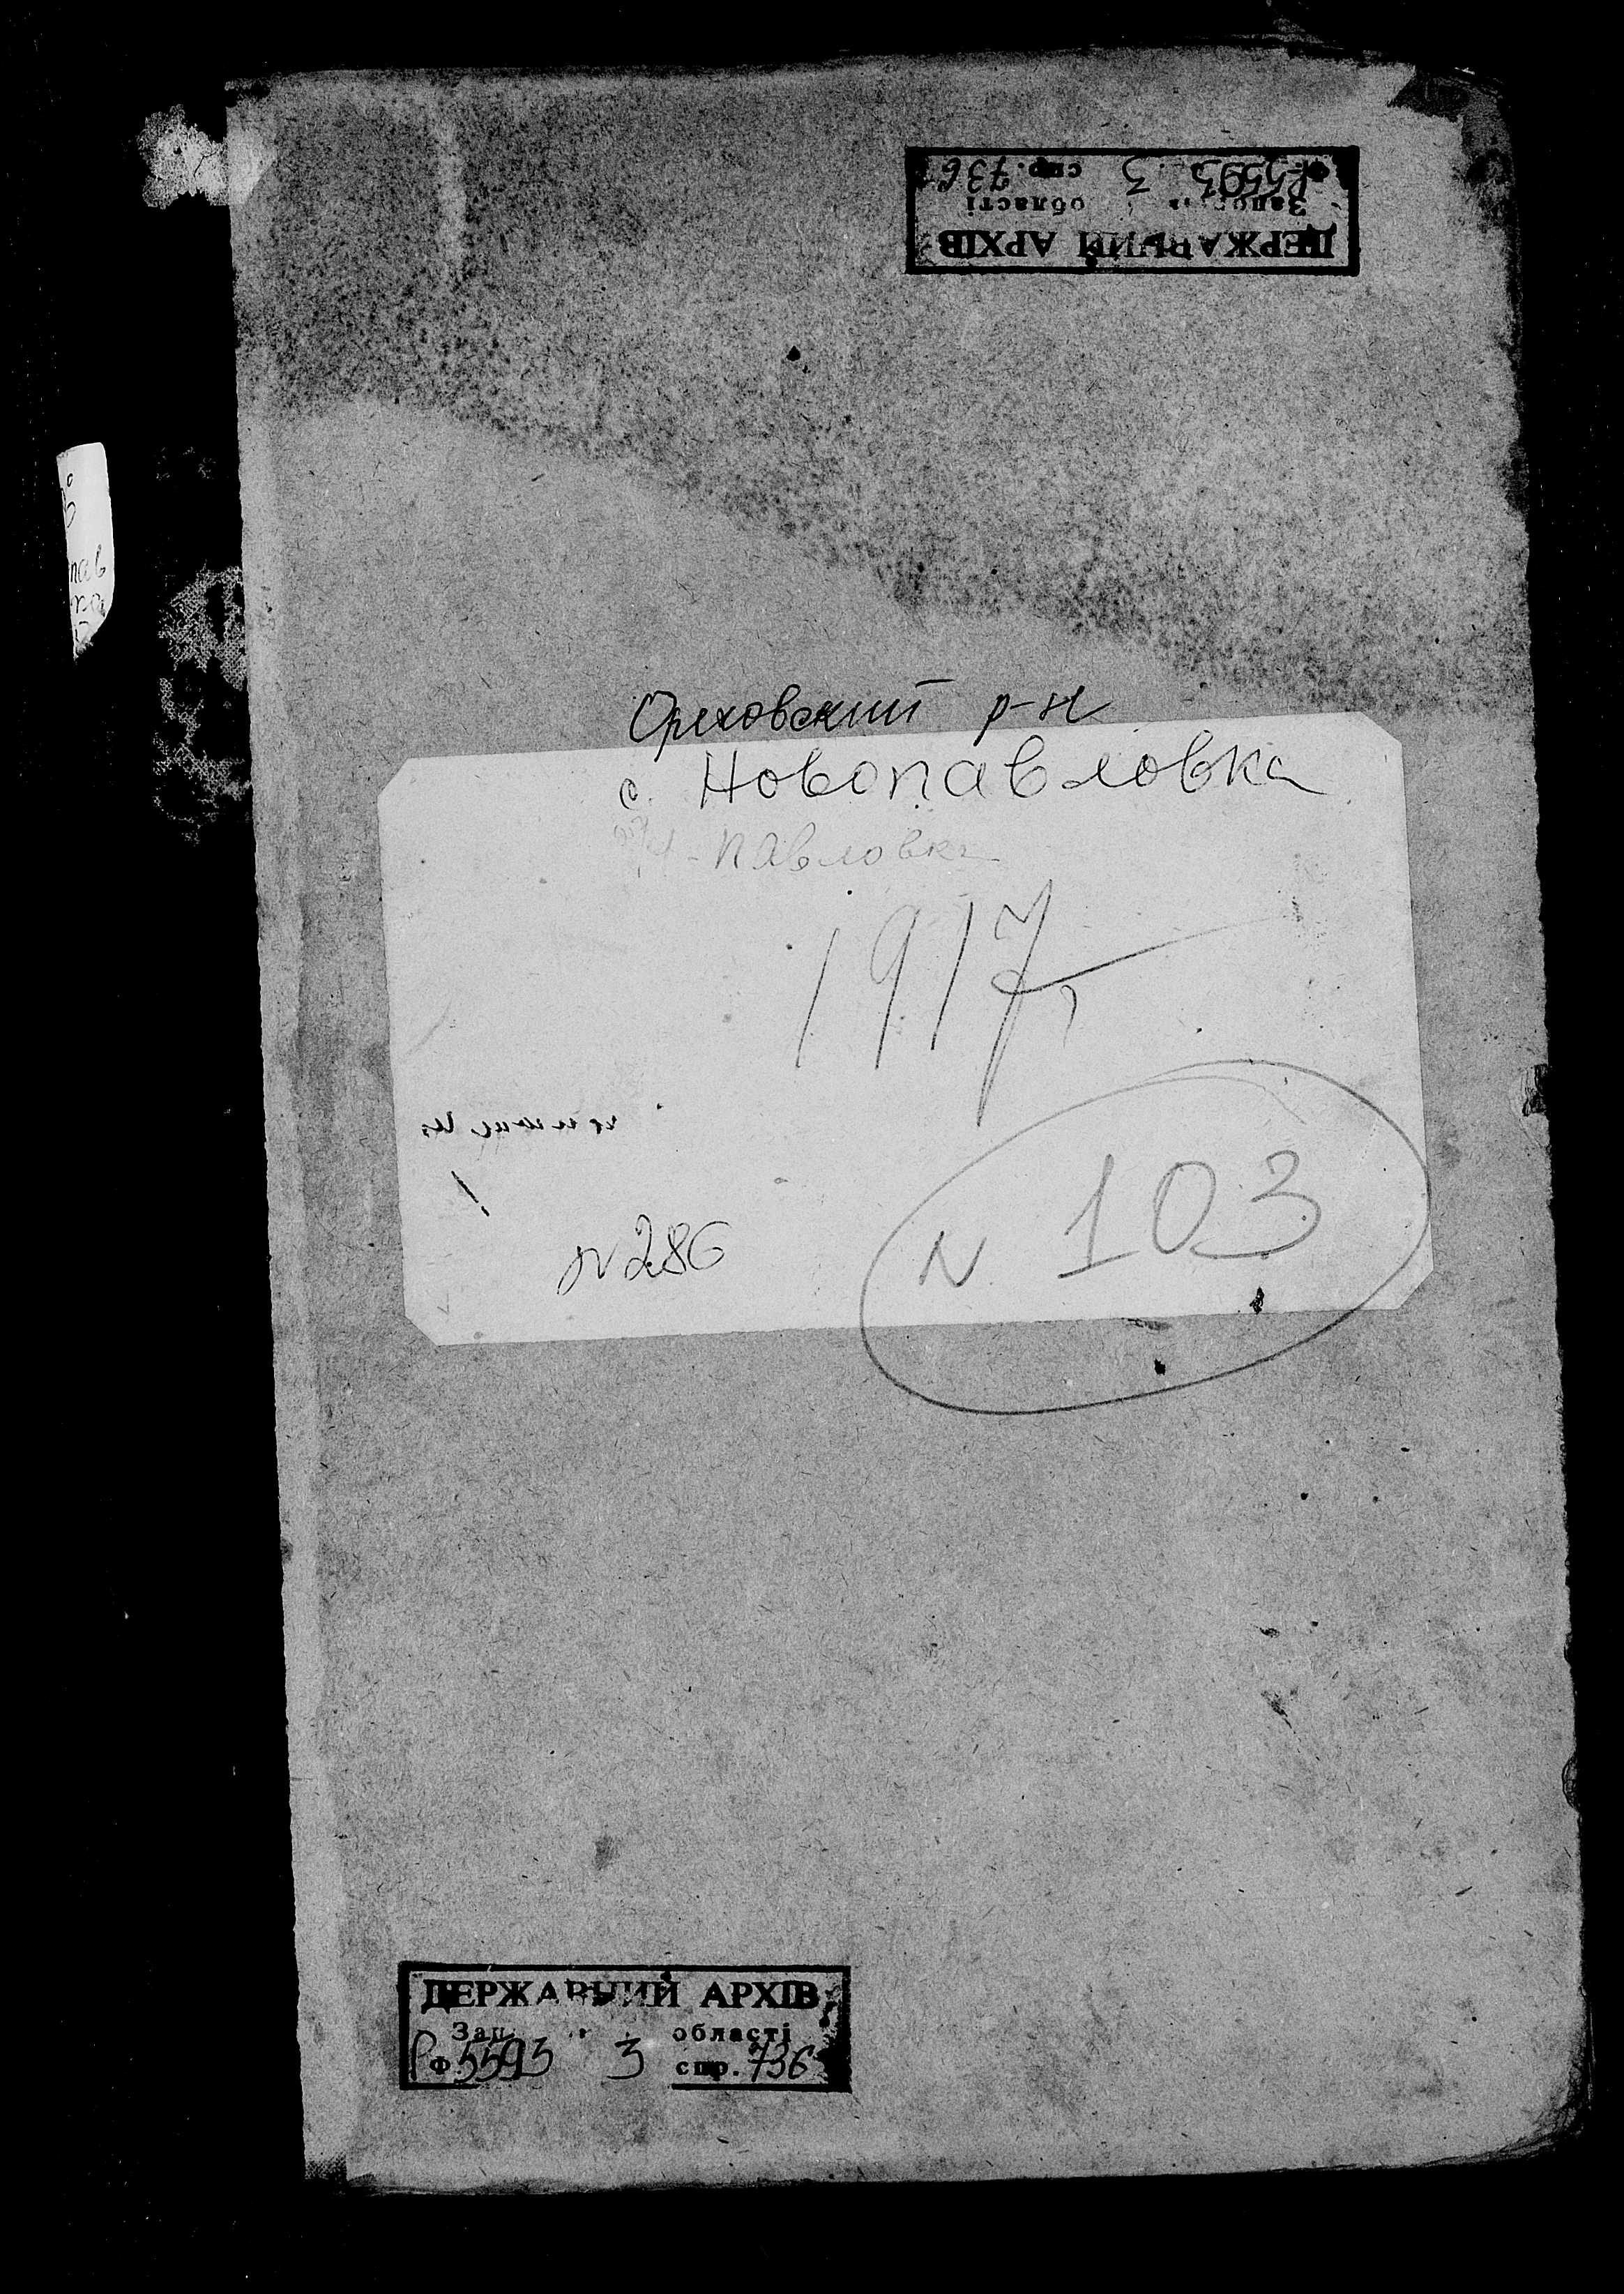 ДЕРЖАВНИЙ АРХІВ
області
Р Ф 5593 3 спр. 736
пав
ка
Ореховский р-н
с. Новопавловка
Н-Павловка
1917
N 103
N 286
ДЕРЖАВНИЙ АРХІВ
Зап області
Р Ф 5593 3 спр. 736